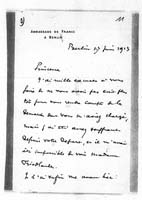 11
AMBASSADE DE FRANCE
À BERLIN
Berlin 17 juin 1913
Princesse
J'ai mille excuses à vous
faire de ne vous avoir pas
tôt pour vous rendre compte de la
démarche dont vous m'aviez chargé,
mais j'ai été assez souffrant.
Depuis votre départ, et il m'avait
été impossible de voir Madame
Je l'ai enfin vue